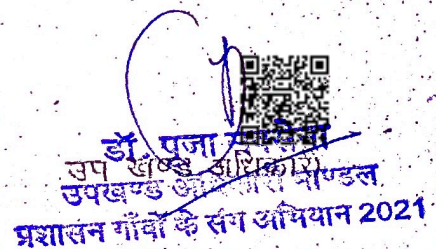 डॉ. पूजा
उप खण्ड अधिकारी
उपखण्ड
प्रशासन गाँवों के संग अभियान 2021